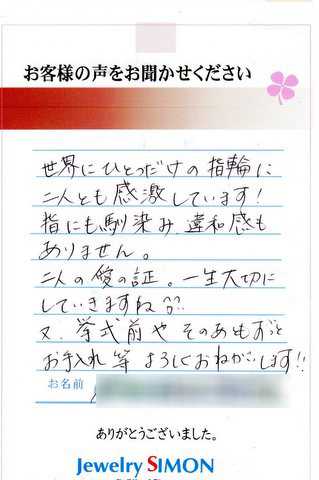 お客様の声をお聞かせください
世界にひとつだけの指輪に
二人とも感激しています!
指にも馴染み、違和感も
ありません。
二人の愛の証。一生大切に
していきますね^^
又、挙式前や そのあともずっと
お手入れ等 よろしくおねがいします!!
お名前
ありがとうございました。
Jewelry SIMON